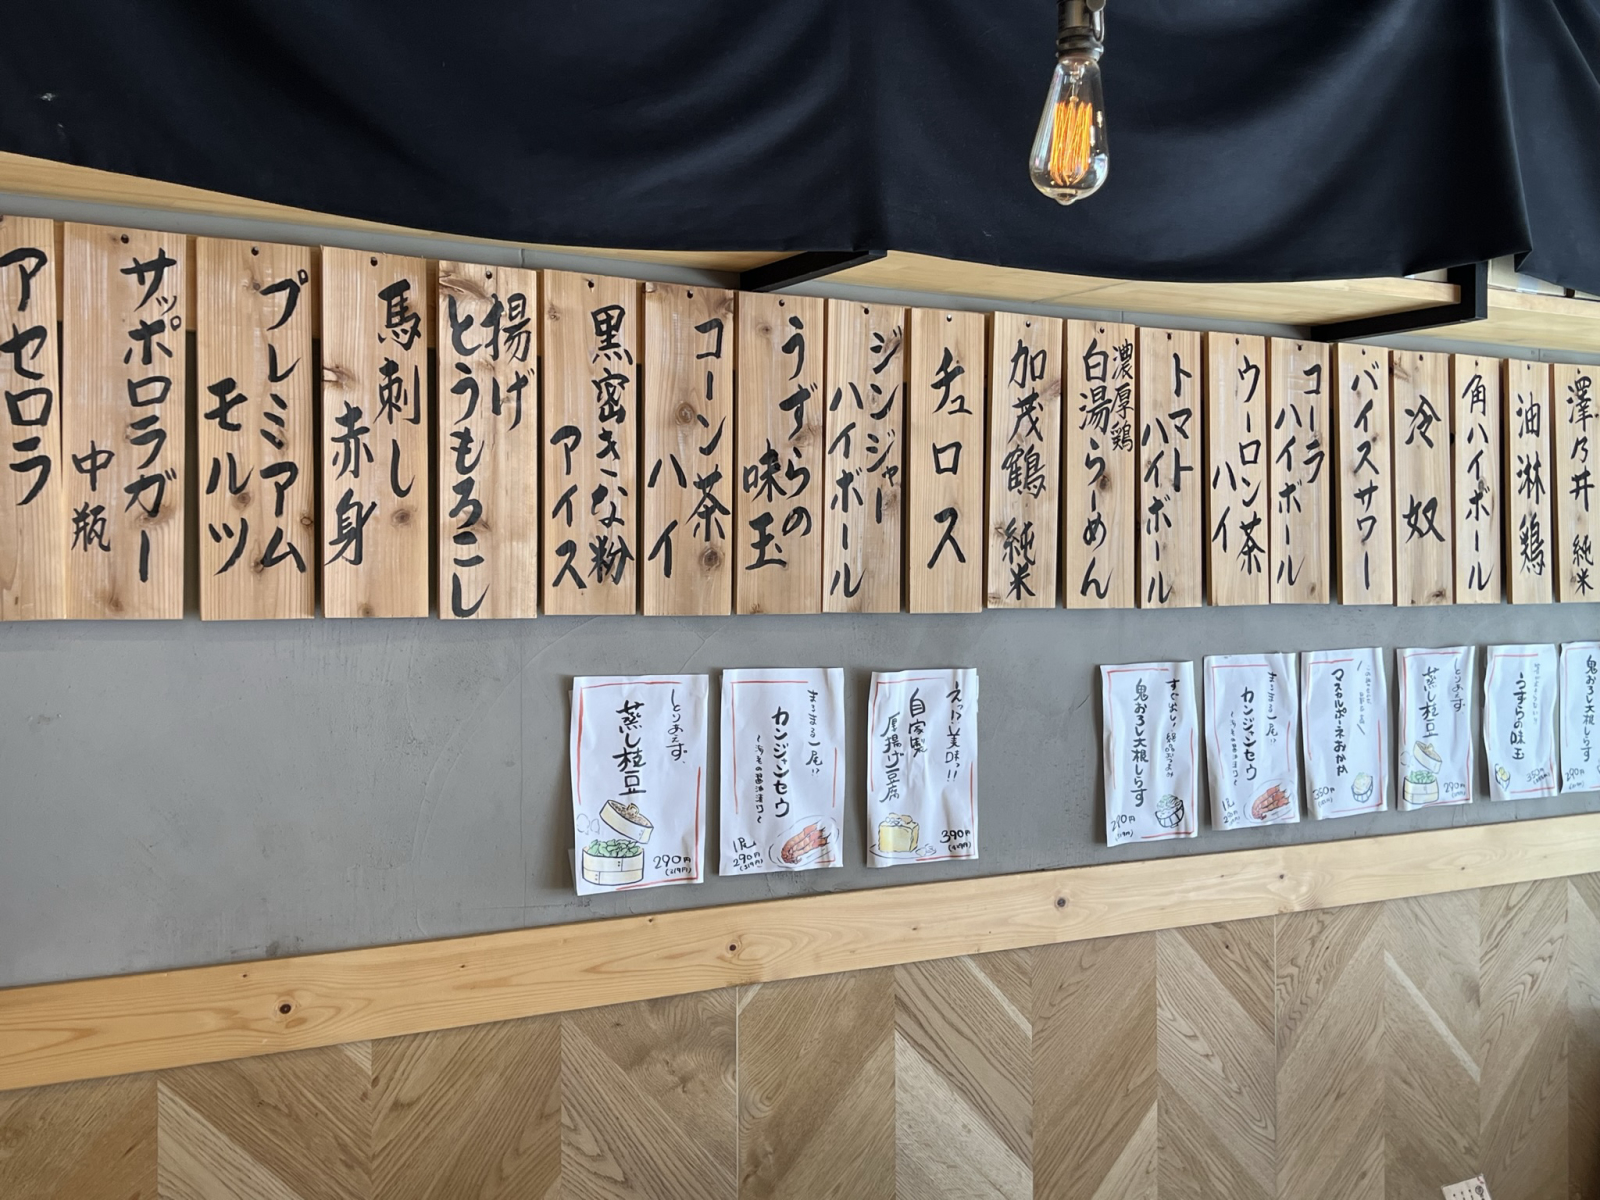 アセロラ
サッポロラガー
中瓶
プレミアム
モルツ
馬刺し
赤身
揚げ
とうもろこし
黒密きな粉
アイス
コーン茶
ハイ
うずらの
味玉
ジンジャー
ハイボール
チュロス
加茂鶴 純米
濃厚鶏
白湯らーめん
トマト
ハイボール
ウーロン茶
ハイ
コーラ
ハイボール
バイスサワー
冷奴
角ハイボール
油淋鶏
澤乃井 純米
とりあえず
蒸し枝豆
290円
(319円)
まるまる一尾!!
カンジャンセウ
1尾
290円
(319円)
えっ!?美味っ!!
自家製
厚揚げ豆腐
390円
すぐ出し!
鬼おろし大根しらす
290円
まるまる一尾!!
カンジャンセウ
1尾
290円
マスカルポーネおかか
350円
とりあえず
蒸し枝豆
290円
うずらの味玉
350円
鬼おろし大根しらす
290円